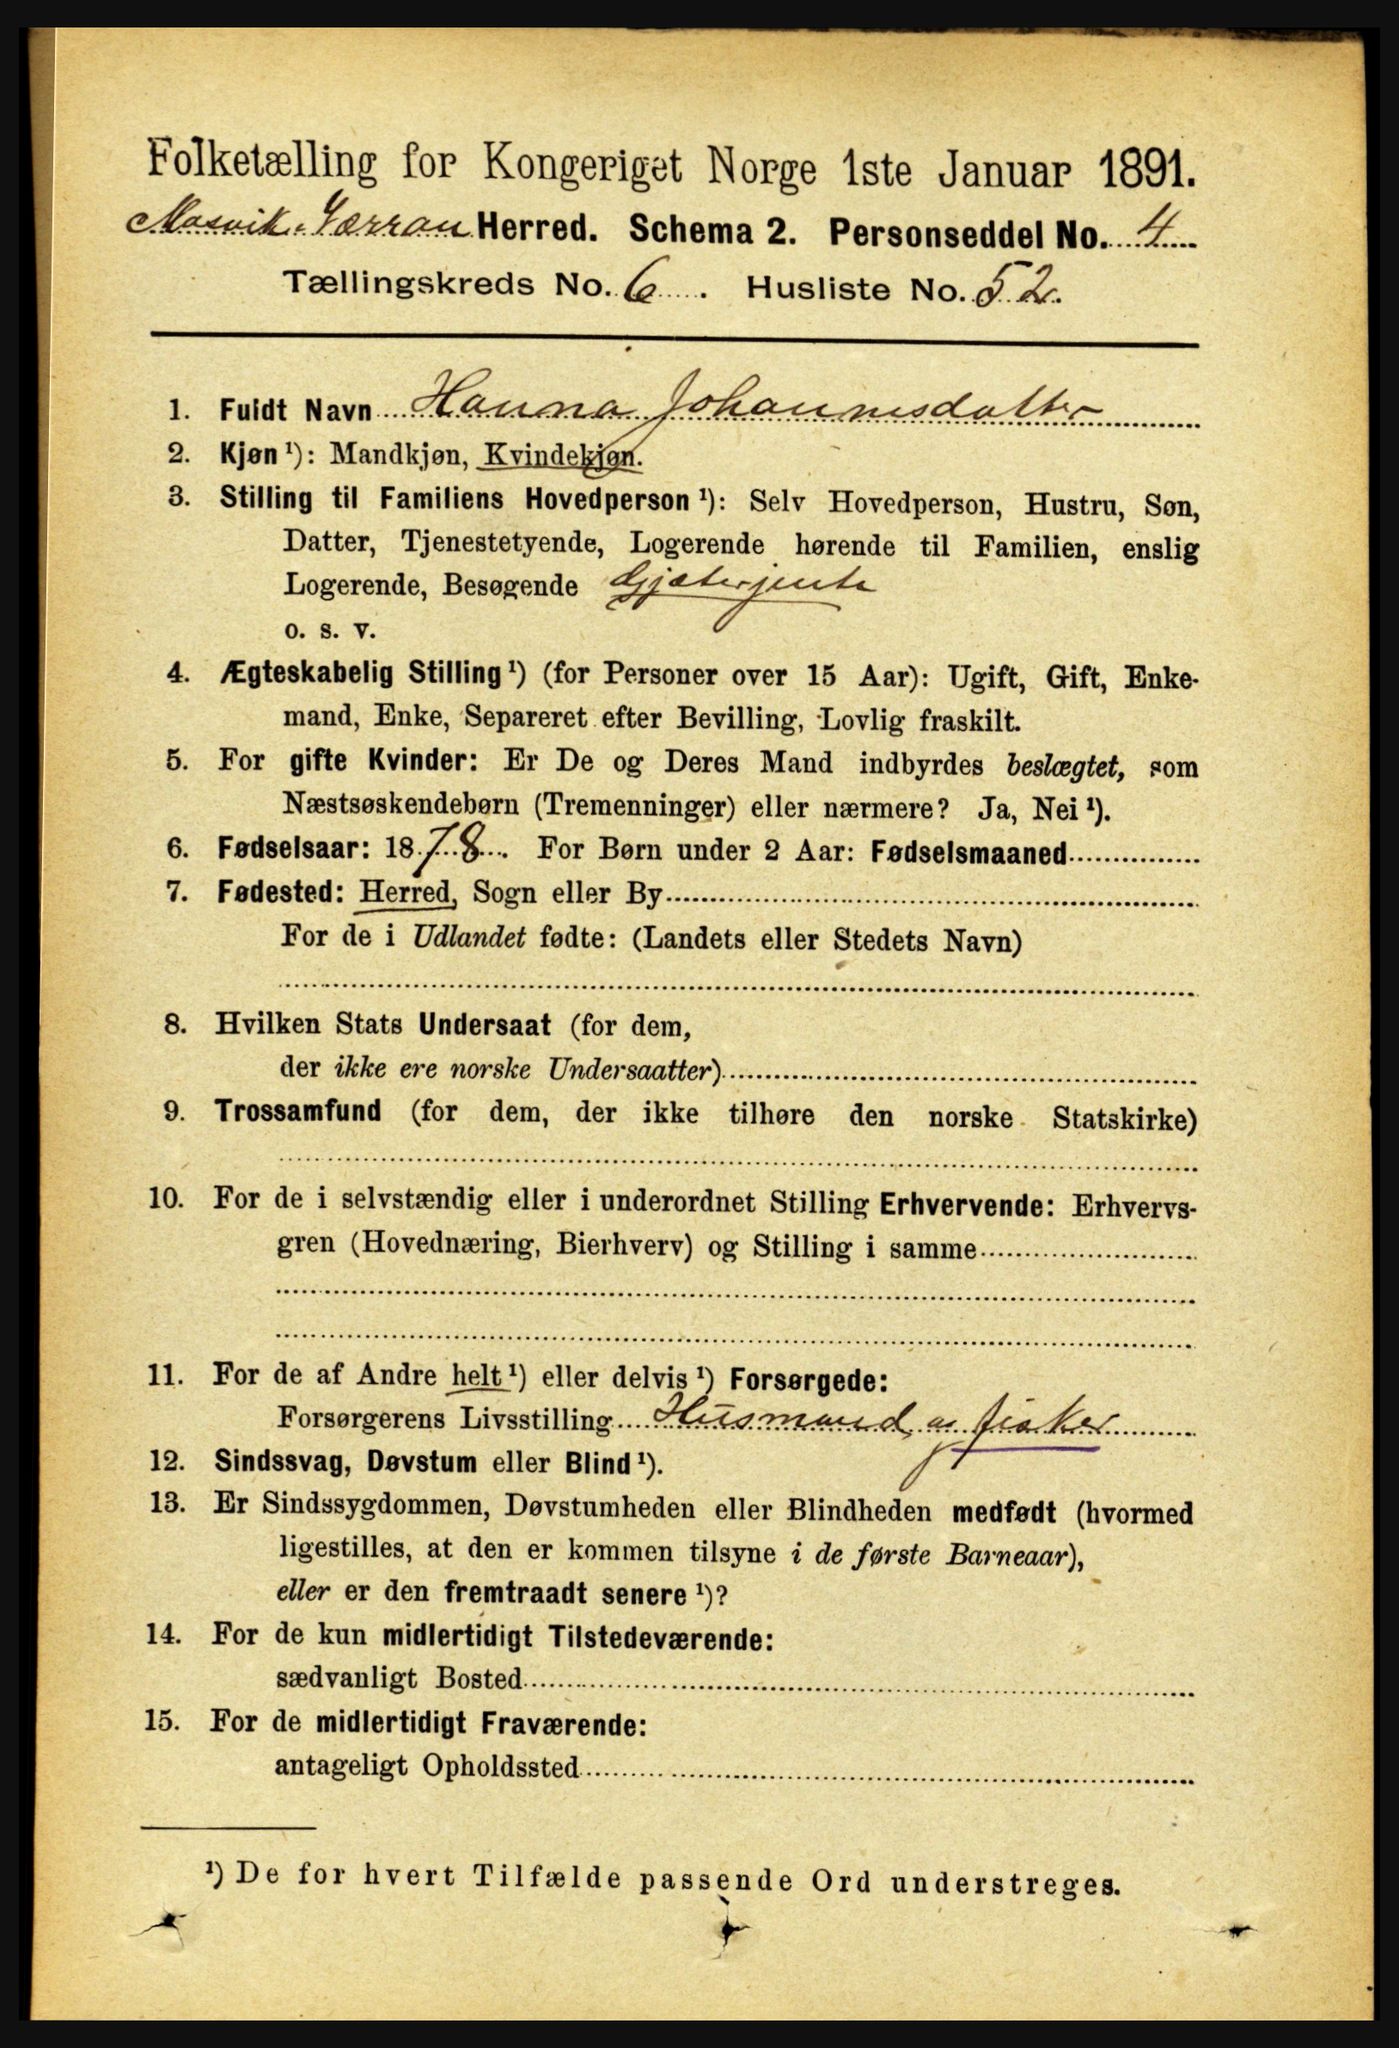 Folketælling for Kongeriget Norge 1ste Januar 1891.
Mosvik. Værran Herred. Schema 2. Personseddel No. 4
Tællingskreds No. 6. Husliste No. 52.
1. Fuldt Navn Hanna Johannesdatter
2. Kjøn ¹): Mandkjøn, Kvindekjøn.
3. Stilling til Familiens Hovedperson ¹): Selv Hovedperson, Hustru, Søn,
Datter, Tjenestetyende, Logerende hørende til Familien, enslig
Logerende, Besøgende Gjæterjente
o. s. v.
4. Ægteskabelig Stilling ¹) (for Personer over 15 Aar): Ugift, Gift, Enke-
mand, Enke, Separeret efter Bevilling, Lovlig fraskilt.
5. For gifte Kvinder: Er De og Deres Mand indbyrdes beslægtet, som
Næstsøskendebørn (Tremenninger) eller nærmere? Ja, Nei ¹).
6. Fødselsaar: 1878. For Børn under 2 Aar: Fødselsmaaned
7. Fødested: Herred, Sogn eller By
For de i Udlandet fødte: (Landets eller Stedets Navn)
8. Hvilken Stats Undersaat (for dem,
der ikke ere norske Undersaatter)
9. Trossamfund (for dem, der ikke tilhøre den norske Statskirke)
10. For de i selvstændig eller i underordnet Stilling Erhvervende: Erhvervs-
gren (Hovednæring, Bierhverv) og Stilling i samme
11. For de af Andre helt ¹) eller delvis ¹) Forsørgede:
Forsørgerens Livsstilling Husmand og fisker
12. Sindssvag, Døvstum eller Blind ¹).
13. Er Sindssygdommen, Døvstumheden eller Blindheden medfødt (hvormed
ligestilles, at den er kommen tilsyne i de første Barneaar),
eller er den fremtraadt senere ¹)?
14. For de kun midlertidigt Tilstedeværende:
sædvanligt Bosted
15. For de midlertidigt Fraværende:
antageligt Opholdssted
¹) De for hvert Tilfælde passende Ord understreges.